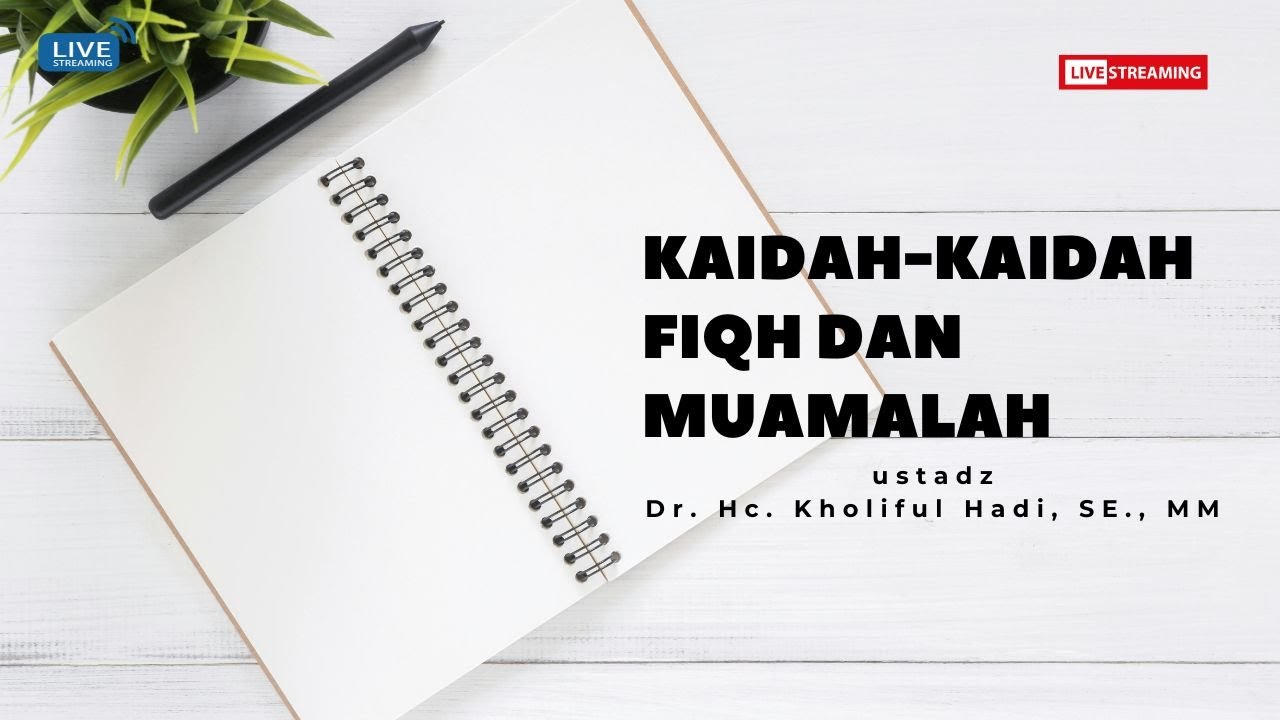 LIVE
STREAMING
LIVE STREAMING
KAIDAH-KAIDAH
FIQH DAN
MUAMALAH
ustadz
Dr. Hc. Kholiful Hadi, SE., MM